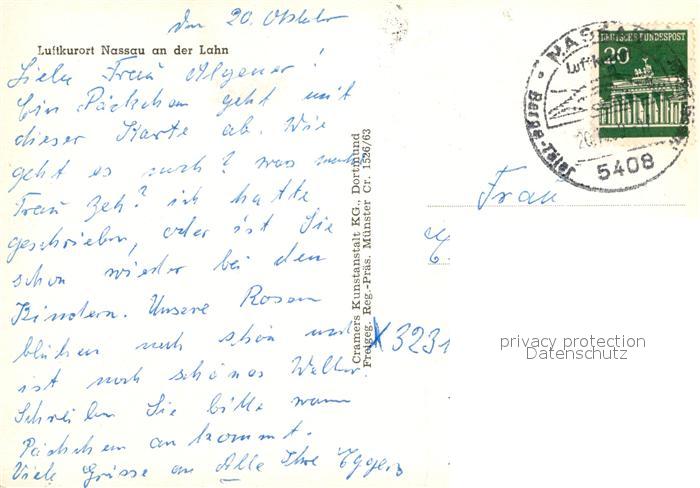 den 20. Oktober
Luftkurort Nassau an der Lahn
Liebe Frau !
Ein Päckchen geht mit
dieser Karte ab. Wie
geht es euch? was macht
Frau Zeh? ich hatte
geschrieben, oder ist Sie
schon wieder bei den
Kindern. Unsere Rosen
blühen noch schön und
ist noch schönes Wetter.
Schreiben Sie bitte wann
Päckchen ankommt.
Viele Grüsse an Alle Ihre
Cramers Kunstanstalt KG., Dortmund
Freigeg. Reg.-Präs. Münster Cr. 1526/63
X3231
NASSAU
Luftkurort
Berge-Täler
5408
DEUTSCHE BUNDESPOST
20
Frau
privacy protection
Datenschutz